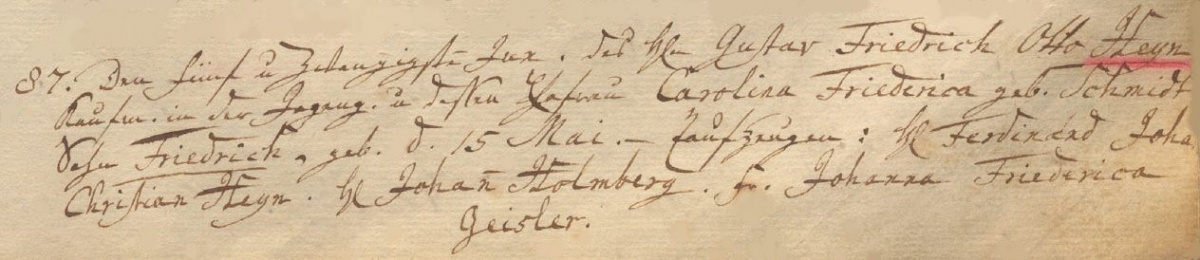 87. Den fünf u Zwanzigste Jun. des Hℓn Gustav Friedrich Otto Heyn
Kaufm. in der Gegeng. u dessen Ehefrau Carolina Friederica geb. Schmidt
Sohn Friedrich, geb. d. 15 Mai. – Taufzeugen: Hℓ Ferdinand Joha
Christian Heyn. Hℓ Johan̄ Holmberg. Fr. Johanna Friederica
Geisler.